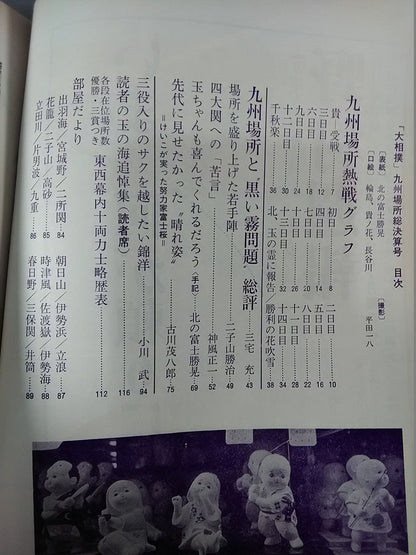 「大相撲」九州場所総決算号 目次
〔表紙〕北の富士勝晃
〔口絵〕輪島、貴ノ花、長谷川
〔撮影〕平田一八
九州場所熱戦グラフ
貴、受戦 7
初日 8
二日目 10
三日目 12
四日目 14
五日目 16
六日目 18
七日目 20
八日目 22
九日目 24
十日目 26
十一日目 28
十二日目 30
十三日目 32
十四日目 34
千秋楽 36
北、玉の霊に報告/勝利の花吹雪 38
九州場所と“黒い霧問題”総評 三宅 充 43
場所を盛り上げた若手陣 二子山勝治 49
四大関への“苦言” 神風正一 52
玉ちゃんも喜んでくれるだろう〈手記〉 北の富士勝晃 69
先代に見せたかった“晴れ姿” 古川茂八郎 75
=けいこが実った努力家富士桜=
三役入りのサクを越したい錦洋 小川 武 94
読者の玉の海追悼集(読者席) 116
各段在位場所数
優勝・三賞つき 東西幕内十両力士略歴表 112
部屋だより
出羽海/宮城野/二所関 84
朝日山/伊勢浜/立浪 87
花籠/二子山/高砂 85
時津風/佐渡嶽/伊勢海 88
立田川/片男波/九重 86
春日野/三保関/井筒 89